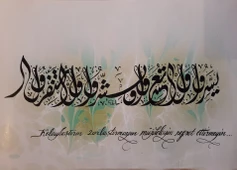 يسروا ولا تعسروا وبشروا ولا تنفروا
Kolaylaştırın zorlaştırmayın müjdeleyin nefret ettirmeyin...